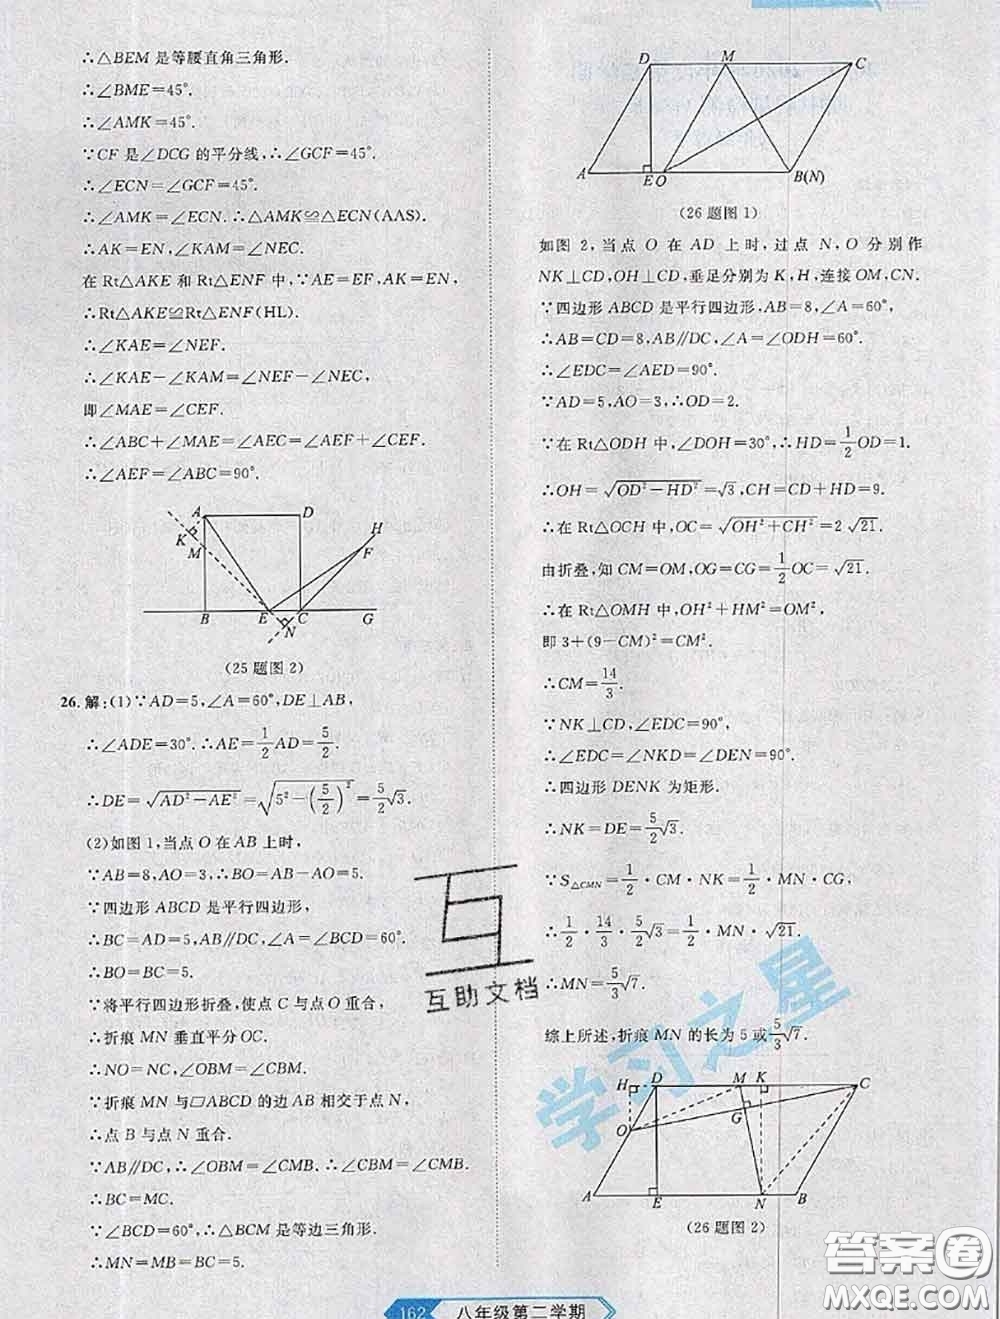 ∴△BEM 是等腰直角三角形.
∴∠BME=45°.
∴∠AMK=45°.
∵CF 是∠DCG 的平分线,∴∠GCF=45°.
∴∠ECN=∠GCF=45°.
∴∠AMK=∠ECN. ∴△AMK≌△ECN(AAS).
∴AK=EN,∠KAM=∠NEC.
在 Rt△AKE 和 Rt△ENF 中,∵AE=EF,AK=EN,
∴Rt△AKE≌Rt△ENF(HL).
∴∠KAE=∠NEF.
∴∠KAE-∠KAM=∠NEF-∠NEC,
即∠MAE=∠CEF.
∴∠ABC+∠MAE=∠AEC=∠AEF+∠CEF.
∴∠AEF=∠ABC=90°.
A D H
K M F
B E C G
N
(25 题图 2)
26. 解:(1)∵AD=5,∠A=60°,DE⊥AB,
∴∠ADE=30°. ∴AE=1/2 AD=5/2.
∴DE=√(AD²-AE²)=√(5²-(5/2)²)=5/2√3.
(2)如图 1,当点 O 在 AB 上时,
∵AB=8,AO=3,∴BO=AB-AO=5.
∵四边形 ABCD 是平行四边形,
∴BC=AD=5,AB∥DC,∠A=∠BCD=60°.
∴BO=BC=5.
∵将平行四边形折叠,使点 C 与点 O 重合,
∴折痕 MN 垂直平分 OC.
∴NO=NC,∠OBM=∠CBM.
∵折痕 MN 与□ABCD 的边 AB 相交于点 N,
∴点 B 与点 N 重合.
∵AB∥DC,∴∠OBM=∠CMB. ∴∠CBM=∠CMB.
∴BC=MC.
∵∠BCD=60°,∴△BCM 是等边三角形.
∴MN=MB=BC=5.
D M C
A E O B(N)
(26 题图 1)
如图 2,当点 O 在 AD 上时,过点 N,O 分别作
NK⊥CD,OH⊥CD,垂足分别为 K,H,连接 OM,CN.
∵四边形 ABCD 是平行四边形,AB=8,∠A=60°,
∴AB=CD=8,AB∥DC,∠A=∠ODH=60°.
∴∠EDC=∠AED=90°.
∵AD=5,AO=3,∴OD=2.
∵在 Rt△ODH 中,∠DOH=30°,∴HD=1/2 OD=1.
∴OH=√(OD²-HD²)=√3,CH=CD+HD=9.
∴在 Rt△OCH 中,OC=√(OH²+CH²)=2√21.
由折叠,知 CM=OM,OG=CG=1/2 OC=√21.
∴在 Rt△OMH 中,OH²+HM²=OM²,
即 3+(9-CM)²=CM².
∴CM=14/3.
∵NK⊥CD,∠EDC=90°,
∴∠EDC=∠NKD=∠DEN=90°.
∴四边形 DENK 为矩形.
∴NK=DE=5/2√3.
∵S△CMN=1/2·CM·NK=1/2·MN·CG,
∴1/2·14/3·5/2√3=1/2·MN·√21.
∴MN=5/3√7.
综上所述,折痕 MN 的长为 5 或5/3√7.
H D M K C
O G
A E N B
(26 题图 2)
互助文档
学习之星
答案圈
MXQE.COM
162 八年级第二学期